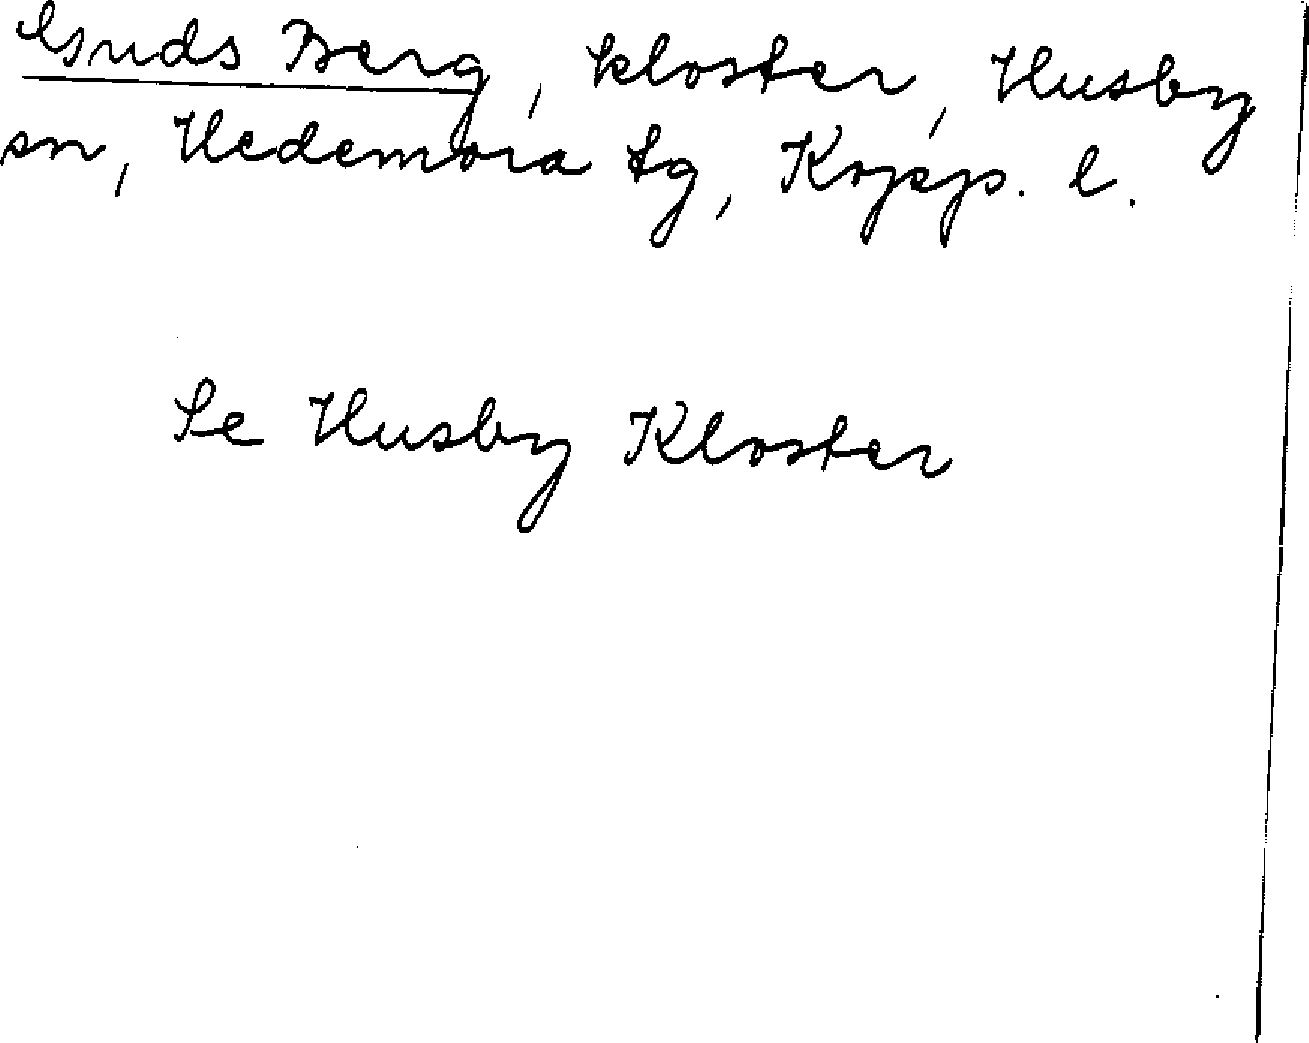 Guds Berg, kloster, Husby
sn, Hedemora tg, Kopp. l.
Se Husby Kloster